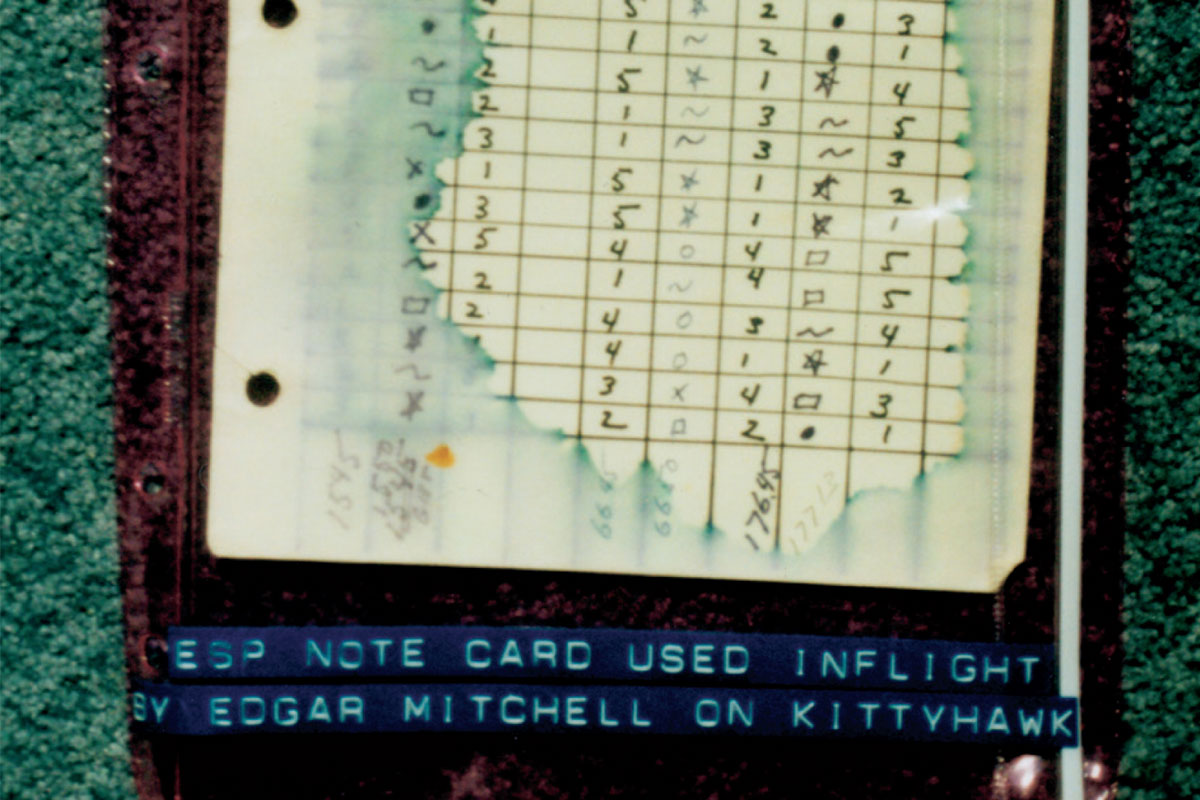 5 ☆ 2 ● 3
● 1 1 ~ 2 ● 1
~ 2 5 ☆ 1 ☆ 4
□ 2 1 ~ 3 ~ 5
~ 3 1 ~ 3 ~ 3
× 1 5 ☆ 1 ☆ 2
● 3 5 ☆ 1 ☆ 1
× 5 4 ○ 4 □ 5
~ 2 1 ~ 4 □ 5
□ 2 4 ○ 3 ~ 4
☆ 4 ○ 1 ☆ 1
~ 3 × 4 □ 3
☆ 2 □ 2 ● 1
1545 6645 17645
ESP NOTE CARD USED INFLIGHT
BY EDGAR MITCHELL ON KITTYHAWK